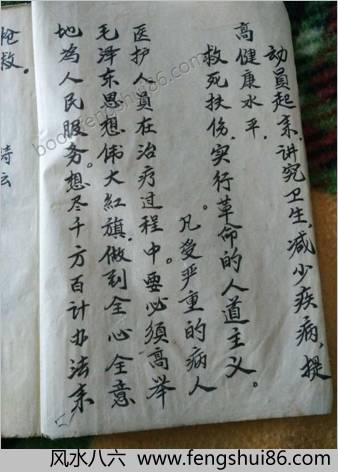 动员起来,讲究卫生,减少疾病,提
高健康水平.
救死扶伤,实行革命的人道主义。
凡受严重的病人
医护人员在治疗过程中。要必须高举
毛泽东思想伟大紅旗,做到全心全意
地为人民服务。想尽千方百计办法来
抢救。
book.fengshui86.com
风水八六 www.fengshui86.com